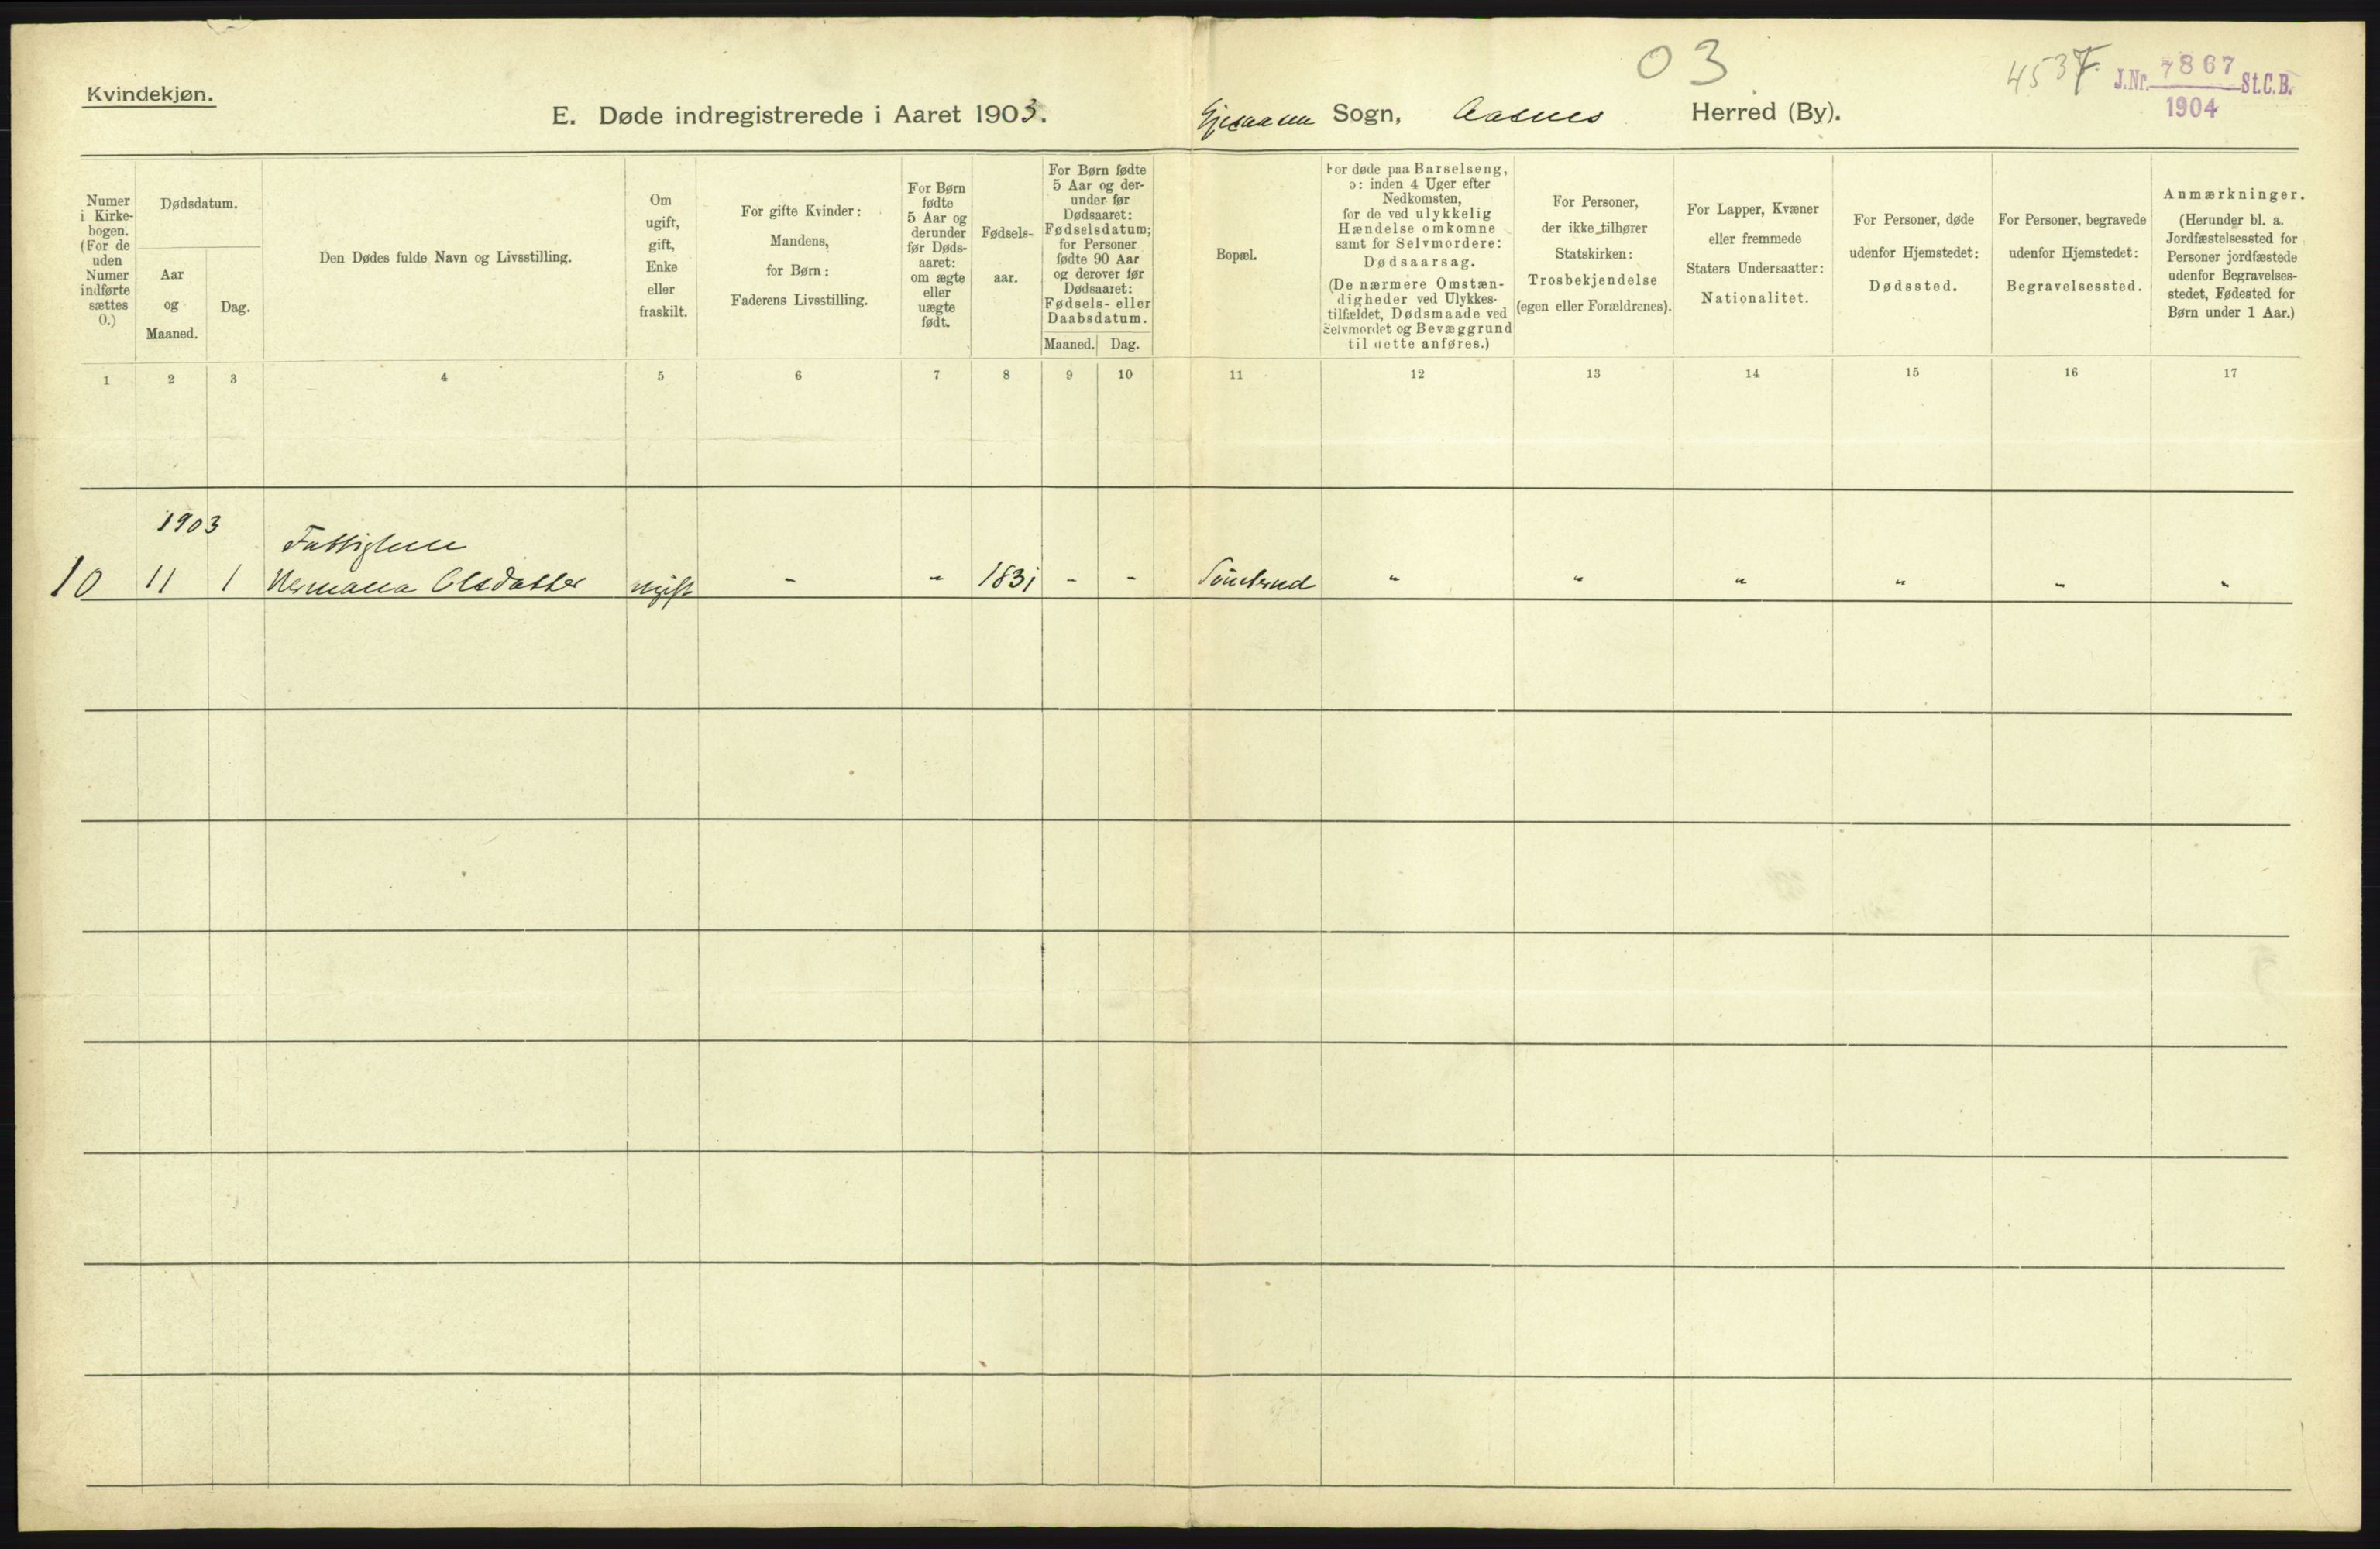 03
4537.
J.Nr. 7867 St.C.B.
1904
Kvindekjøn.
E. Døde indregistrerede i Aaret 1903. Gjesaasen Sogn, Aasnes Herred (By).
Numer
i Kirke-
bogen.
(For de
uden
Numer
indførte
sættes
0.)
Dødsdatum.
Aar
og
Maaned.
Dag.
Den Dødes fulde Navn og Livsstilling.
Om
ugift,
gift,
Enke
eller
fraskilt.
For gifte Kvinder:
Mandens,
for Børn:
Faderens Livsstilling.
For Børn
fødte
5 Aar og
derunder
før Døds-
aaret:
om ægte
eller
uægte
født.
Fødsels-
aar.
For Børn fødte
5 Aar og der-
under før
Dødsaaret:
Fødselsdatum;
for Personer
fødte 90 Aar
og derover før
Dødsaaret:
Fødsels- eller
Daabsdatum.
Maaned. Dag.
Bopæl.
For døde paa Barselseng,
ɔ: inden 4 Uger efter
Nedkomsten,
for de ved ulykkelig
Hændelse omkomne
samt for Selvmordere:
Dødsaarsag.
(De nærmere Omstæn-
digheder ved Ulykkes-
tilfældet, Dødsmaade ved
Selvmordet og Bevæggrund
til dette anføres.)
For Personer,
der ikke tilhører
Statskirken:
Trosbekjendelse
(egen eller Forældrenes).
For Lapper, Kvæner
eller fremmede
Staters Undersaatter:
Nationalitet.
For Personer, døde
udenfor Hjemstedet:
Dødssted.
For Personer, begravede
udenfor Hjemstedet:
Begravelsessted.
Anmærkninger.
(Herunder bl. a.
Jordfæstelsessted for
Personer jordfæstede
udenfor Begravelses-
stedet, Fødested for
Børn under 1 Aar.)
1 2 3 4 5 6 7 8 9 10 11 12 13 14 15 16 17
1903
10 11 1 Olsdatter ugift - " 1831 - - " " " " " "